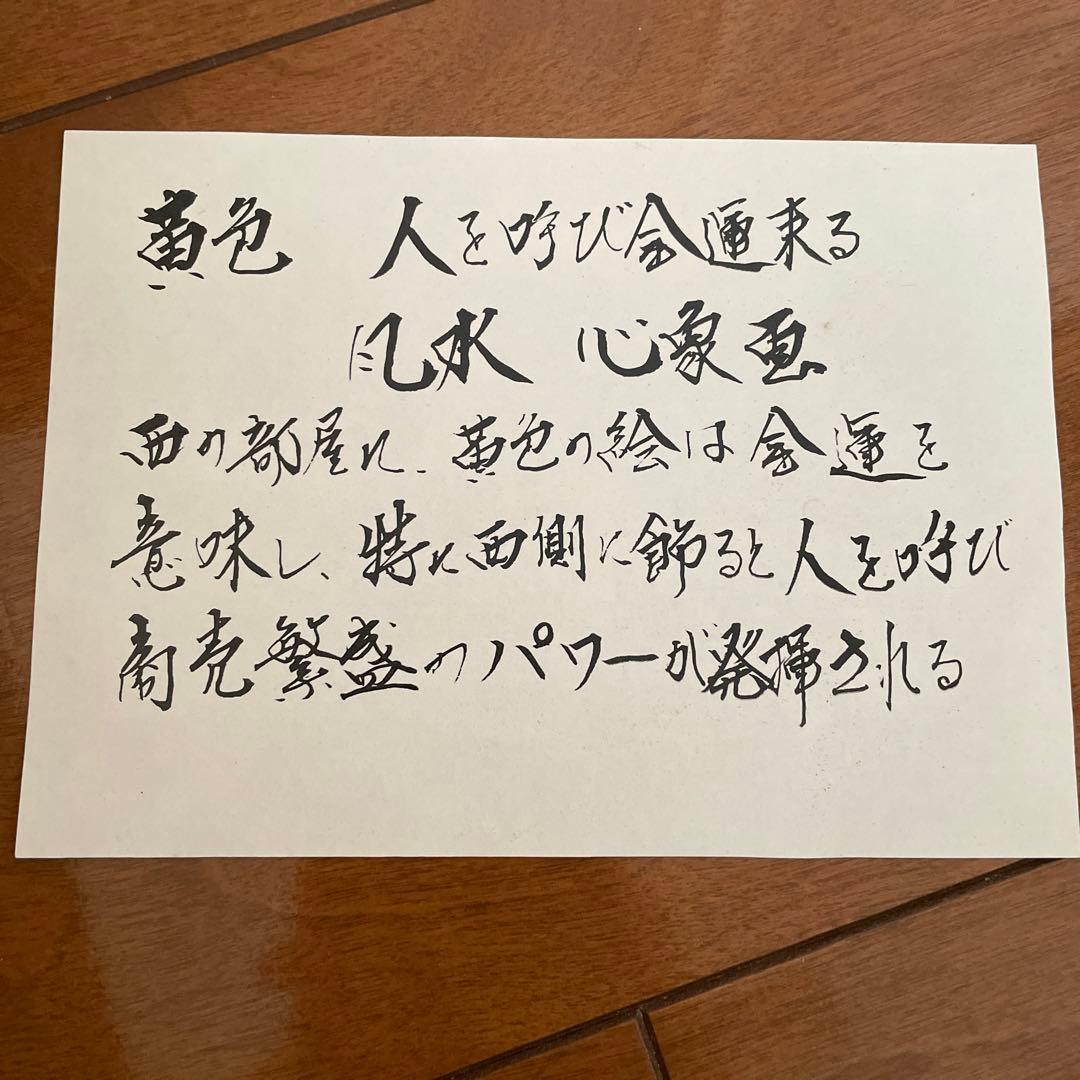 黄色　人を呼び金運来る
風水　心象画
西の部屋に、黄色の絵は金運を
意味し、特に西側に飾ると人を呼び
商売繁盛のパワーが発揮される